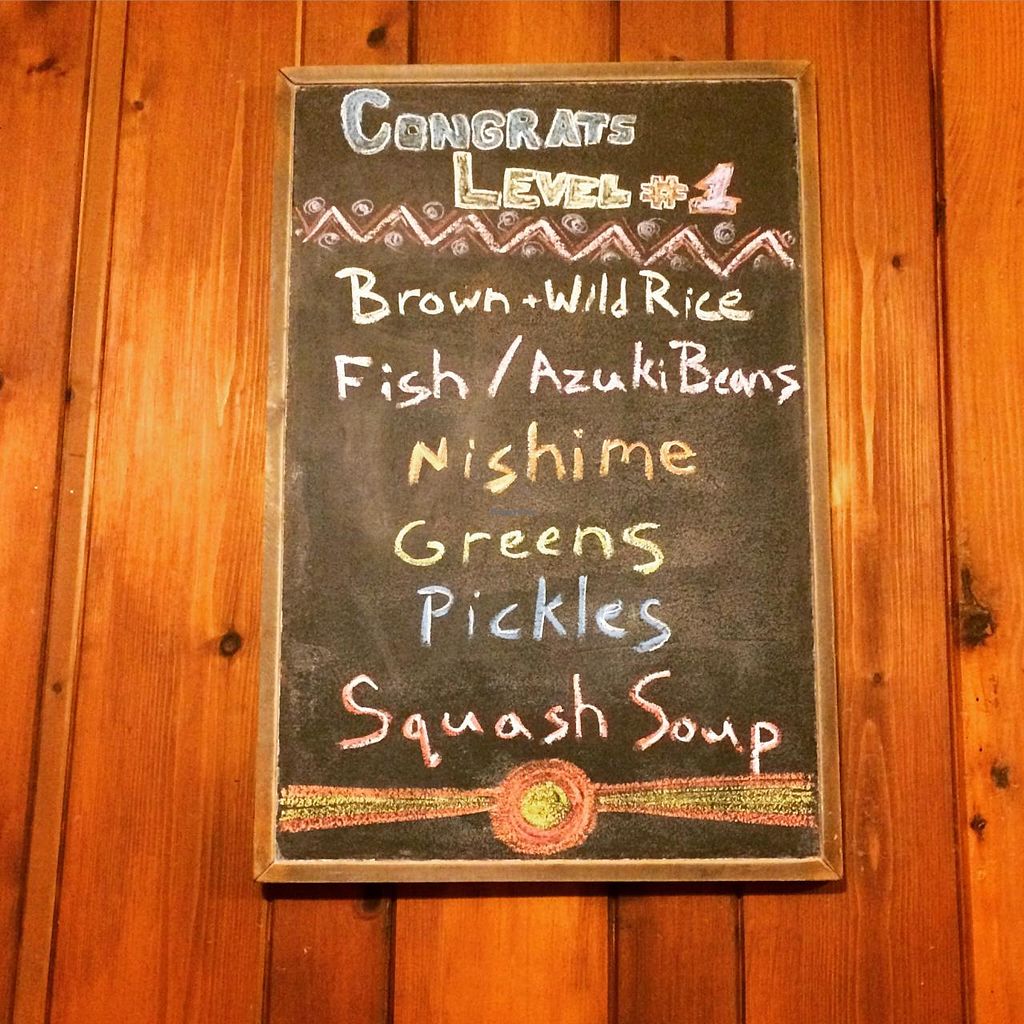 CONGRATS
LEVEL #1
Brown + Wild Rice
Fish / Azuki Beans
Nishime
Greens
Pickles
Squash Soup